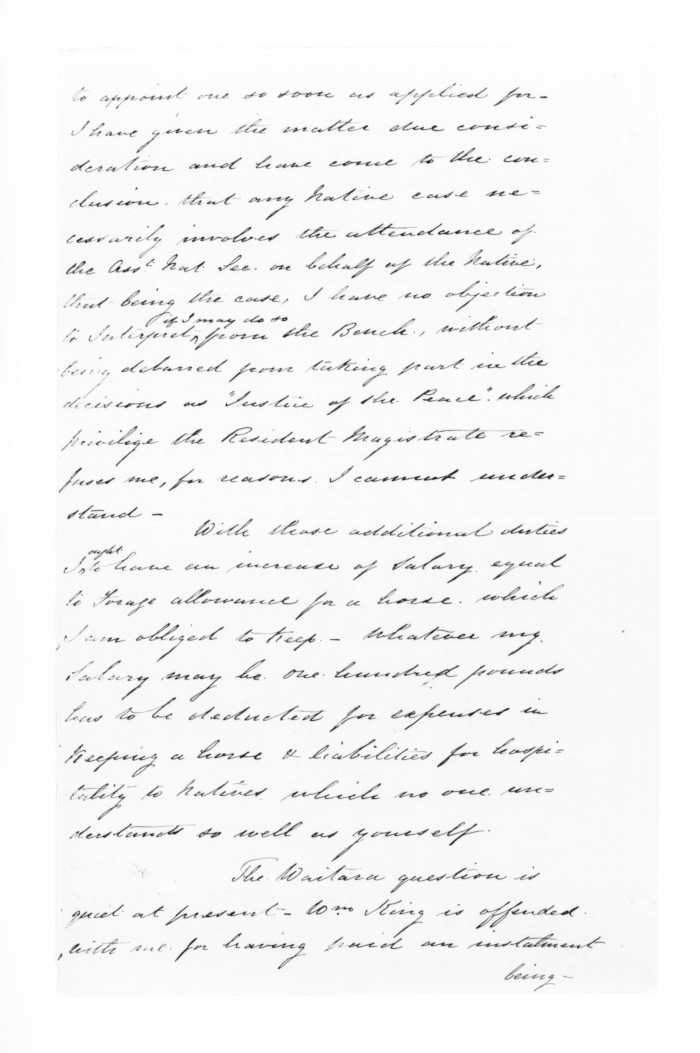 to appoint one so soon as applied for -
I have given the matter due consi=
deration and have come to the con=
clusion. that any Native case ne=
cessarily involves the attendance of
the Asst. Nat. Sec. on behalf of the Native,
that being the case, I have no objection
if I may do so
to Interpret, from the Bench, without
being debarred from taking part in the
decisions as "Justice of the Peace". which
privilige the Resident Magistrate re=
fuses me, for reasons I cannot under=
stand -
With these additional duties
ought
I to have an increase of Salary equal
to Forage allowance for a horse. which
I am obliged to Keep. - Whatever my
Salary may be one hundred pounds
has to be deducted for expenses in
Keeping a horse & liabilities for hospi=
tality to Natives which no one un=
derstands so well as yourself.
The Waitara question is
quiet at present - Wm King is offended
with me for having paid an instalment
being -